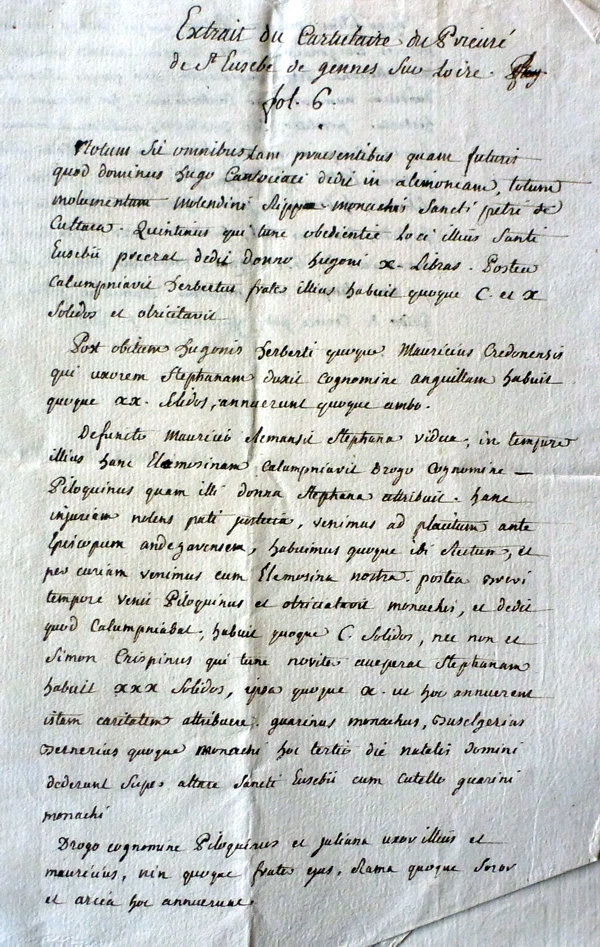 Extrait du Cartulaire du Prieuré
de St Eusebe de gennes sur Loire.
fol. 6.
Notum sit omnibus tam praesentibus quam futuris
quod dominus hugo dedit in elemoncam, totum
molumentum molendini monachis Sancti petri de
Cultura. Quintinus qui tunc obedientie loci illius Santi
Eusebii preerat dedit donno hugoni x. Libras. Postea
Calumpniavit herbertus frater illius habuit quoque C. et x
Solidos et
Post obitum hugonis herberti quoque Mauricius Credonensis
qui uxorem Stephanam duxit cognomine anguillam habuit
quoque xx. Solidos, annuerunt quoque ambo.
Defuncto Mauricio Remansit Stephana vidua, in tempore
illius hanc Elemosinam Calumpniavit Drogo Cognomine —
Piloquinus quam illi donna Stephana attribuit. hanc
injuriam nolens pati, venimus ad placitum ante
Episcopum andegavensem, habuimus quoque ibi Rectum, et
per curiam venimus cum Elemosina nostra. postea brevi
tempore venit Piloquinus et monachis, et dedit
quod Calumpniabat, habuit quoque C. Solidos, nec non et
Simon Crispinus qui tunc noviter acceperat Stephanam
habuit xxx Solidos, ipsa quoque x. ut hoc annuerent
istam caritatem attribuere. guarinus monachus,
Bernerius quoque monachi hoc tertio die natalis Domini
dederunt Super altare Sancti Eusebii cum Cutello guarini
monachi
Drogo cognomine Piloquinus et juliana uxor illius et
mauricius, quoque frater ejus, Rama quoque Soror
et hoc annuerunt.